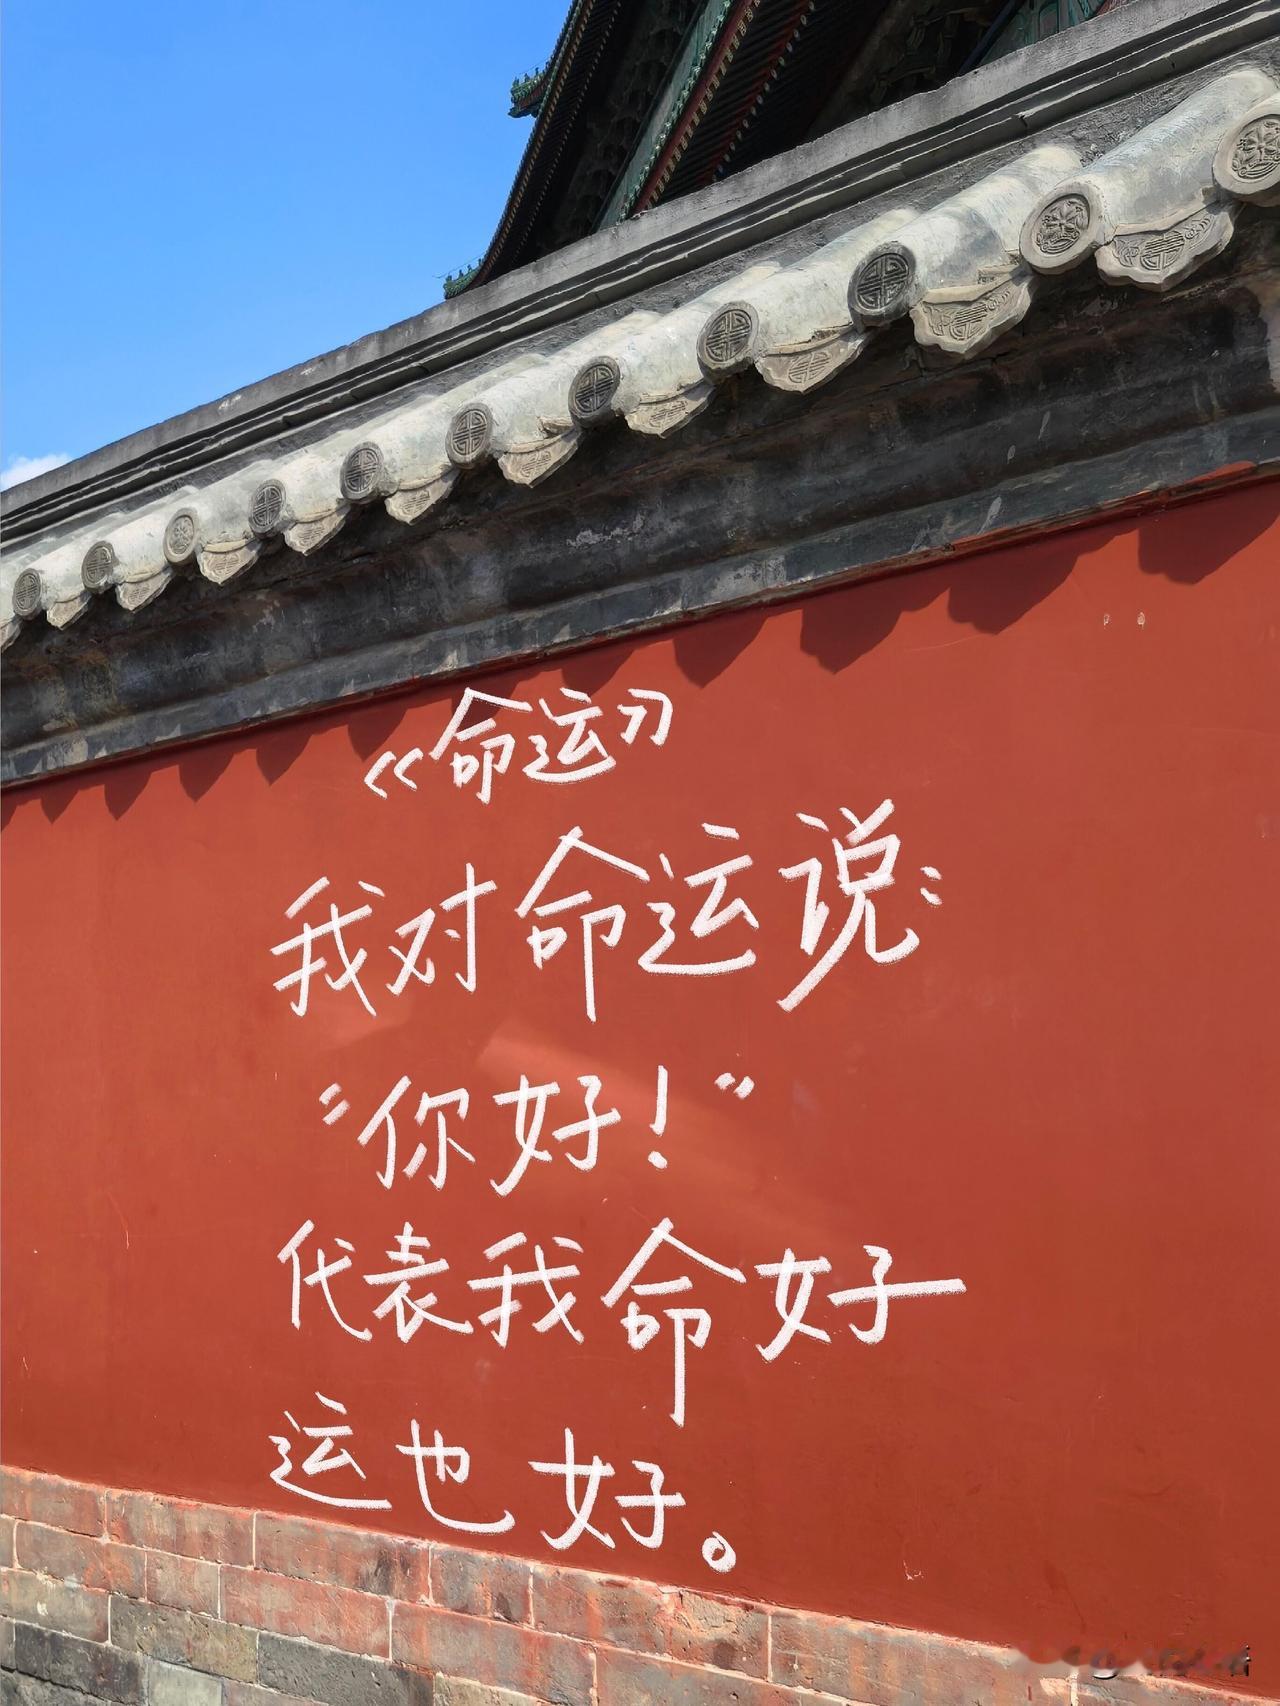 《命运》
我对命运说：
“你好！”
代表我命好
运也好。